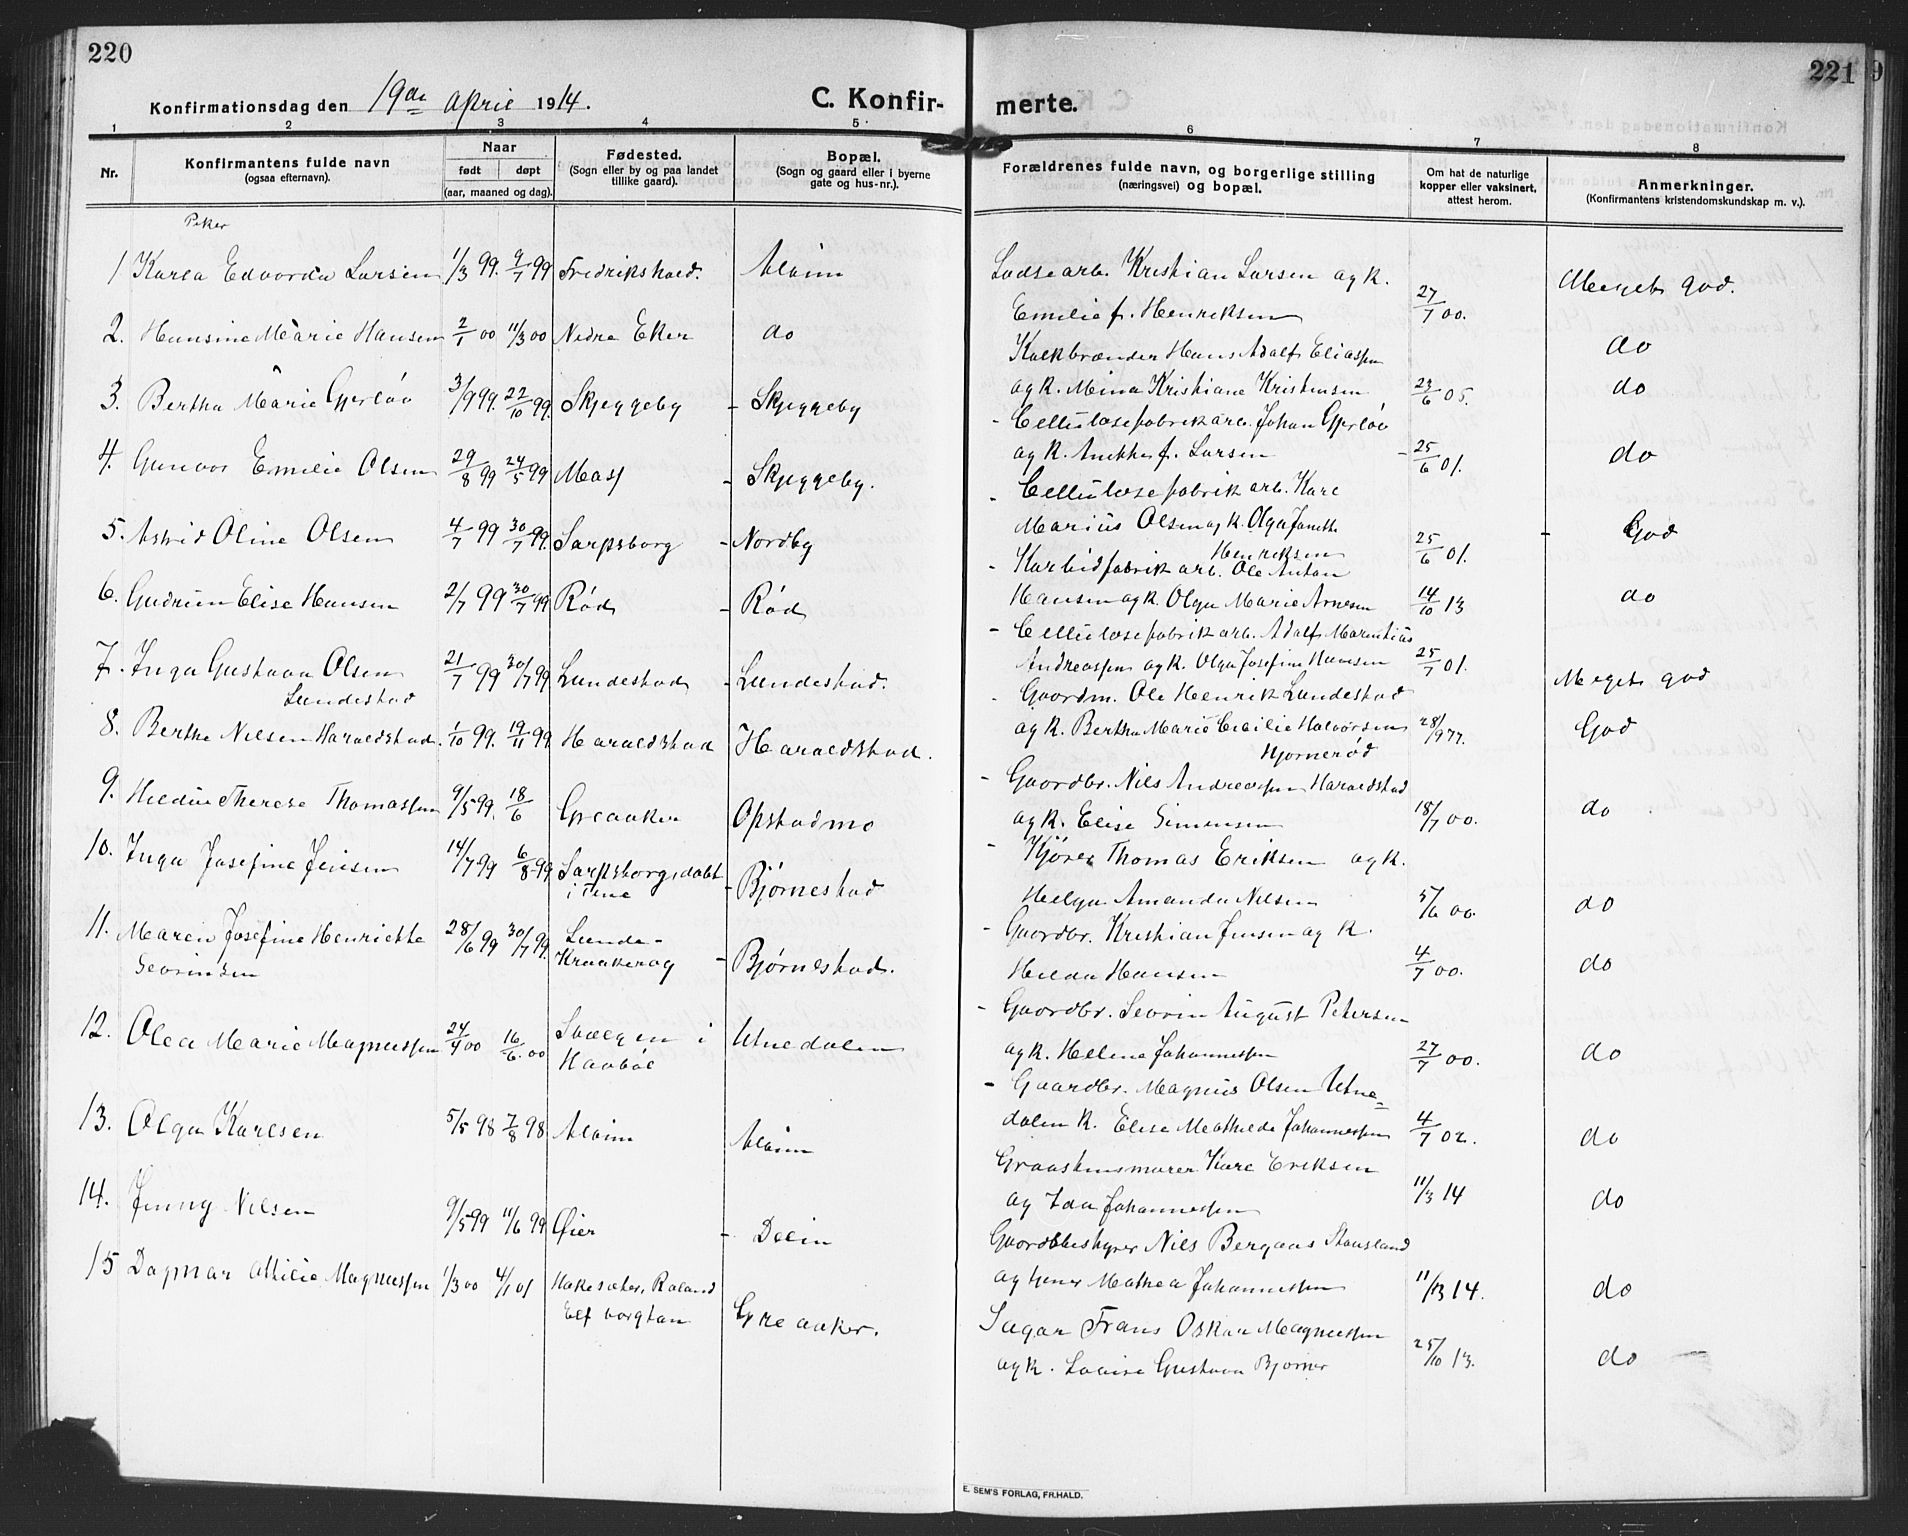 220
221
Konfirmationsdag den 19de April 1914.
C. Konfirmerte.
1 2 3 4 5 6 7 8
Nr.
Konfirmantens fulde navn
(ogsaa efternavn).
Naar
født døpt
(aar, maaned og dag).
Fødested.
(Sogn eller by og paa landet
tillike gaard).
Bopæl.
(Sogn og gaard eller i byerne
gate og hus-nr.).
Forældrenes fulde navn, og borgerlige stilling
(næringsvei) og bopæl.
Om hat de naturlige
kopper eller vaksinert,
attest herom.
Anmerkninger.
(Konfirmantens kristendomskundskap m. v.).
Piker
1 Karla Edvarda Larsen 1/3 99. 9/7 99 Fredrikshald. Alvim
Lodsearb. Kristian Larsen og k.
Emilie f. Henriksen 27/7 00. Meget god.
2. Hansine Marie Hansen 2/1 00 11/3 00 Nedre Eker do
Kalkbrænder Hans Adolf Eliassen
og k. Mina Kristiane Kristensen 23/6 05. do
3. Bertha Marie Gjerløv 3/9 99. 22/10 99. Skjeggeby - Skjeggeby
- Cellulosefabrikarb. Johan Gjerløv
og k. Anethe f. Larsen - 25/6 01. do
4. Gunvor Emilie Olsen 29/8 99 24/5 99 Moss - Skjeggeby.
- Cellulosefabrikarb. Karl
Marius Olsen og k. Olga Janette
Henriksen 25/6 01. do
5. Astrid Oline Olsen 4/7 99 30/7 99. Sarpsborg - Nordby
- Karbidfabrikarb. Ole Anton
Hansen og k. Olga Marie Arnesen 14/10 13 - God
6. Gudrun Elise Hansen 2/7 99 30/7 99 Rød - Rød
- Cellulosefabrikarb. Adolf Marentius
Andreassen og k. Olga Josefine Hansen 25/7 01. do
7. Inga Gustava Olsen
Lundestad 21/7 99 30/7 99 Lundestad - Lundestad.
- Gaardm. Ole Henrik Lundestad
og k. Bertha Marie Cecilie Halvorsen
Hjornerød 28/9 77. Meget god
8. Berthe Nilsen Haraldstad. 1/10 99. 19/11 99 Haraldstad Haraldstad.
- Gaardbr. Nils Andreassen Haraldstad
og k. Elise Simensen 18/7 00. God
9. Hildur Therese Thomassen 9/5 99. 18/6 Greaaker Opstadmo
- Kjører Thomas Eriksen og k.
Helga Amanda Nilsen 5/6 00. do
10. Inga Josefine Jensen 14/7 99 6/8 99 Sarpsborg, døbt
i Tune - Bjørnestad
- Gaardbr. Kristian Jensen og k.
Hilda Hansen 4/7 00. do
11. Maren Josefine Henriette
Sevrinsen 28/6 99 30/7 99. Lunde-
Kraakerøy - Bjørnestad.
- Gaardbr. Sevrin August Petersen
og k. Helene Johannessen 27/7 00. do
12. Olea Marie Magnussen 24/4 00 16/6. 00 Solgen i
Havbøl Utnedalen
- Gaardbr. Magnus Olsen Utne=
dalen k. Elise Mathilde Johannessen 4/7 02. do
13. Olga Karlsen 5/5 98 7/8 98 Alvim Alvim
Graastensmurer Karl Eriksen
og Ida Johannessen 11/3 14 do
14. Jenny Nilsen 9/5 99 11/6 99 Øier - Dølin
Gaardbestyrer Nils Bergaas Stausland
og tjener Mathea Johannessen 11/3 14. do
15 Dagmar Otilie Magnussen 1/3 00 4/1 01 Hakesæter, Roland
Elfsborgslän Greaaker.
Sagar. Frans Oskar Magnussen
og k. Lovise Gustava Bjørner 25/10 13. do
E. SEM'S FORLAG, FR.HALD.